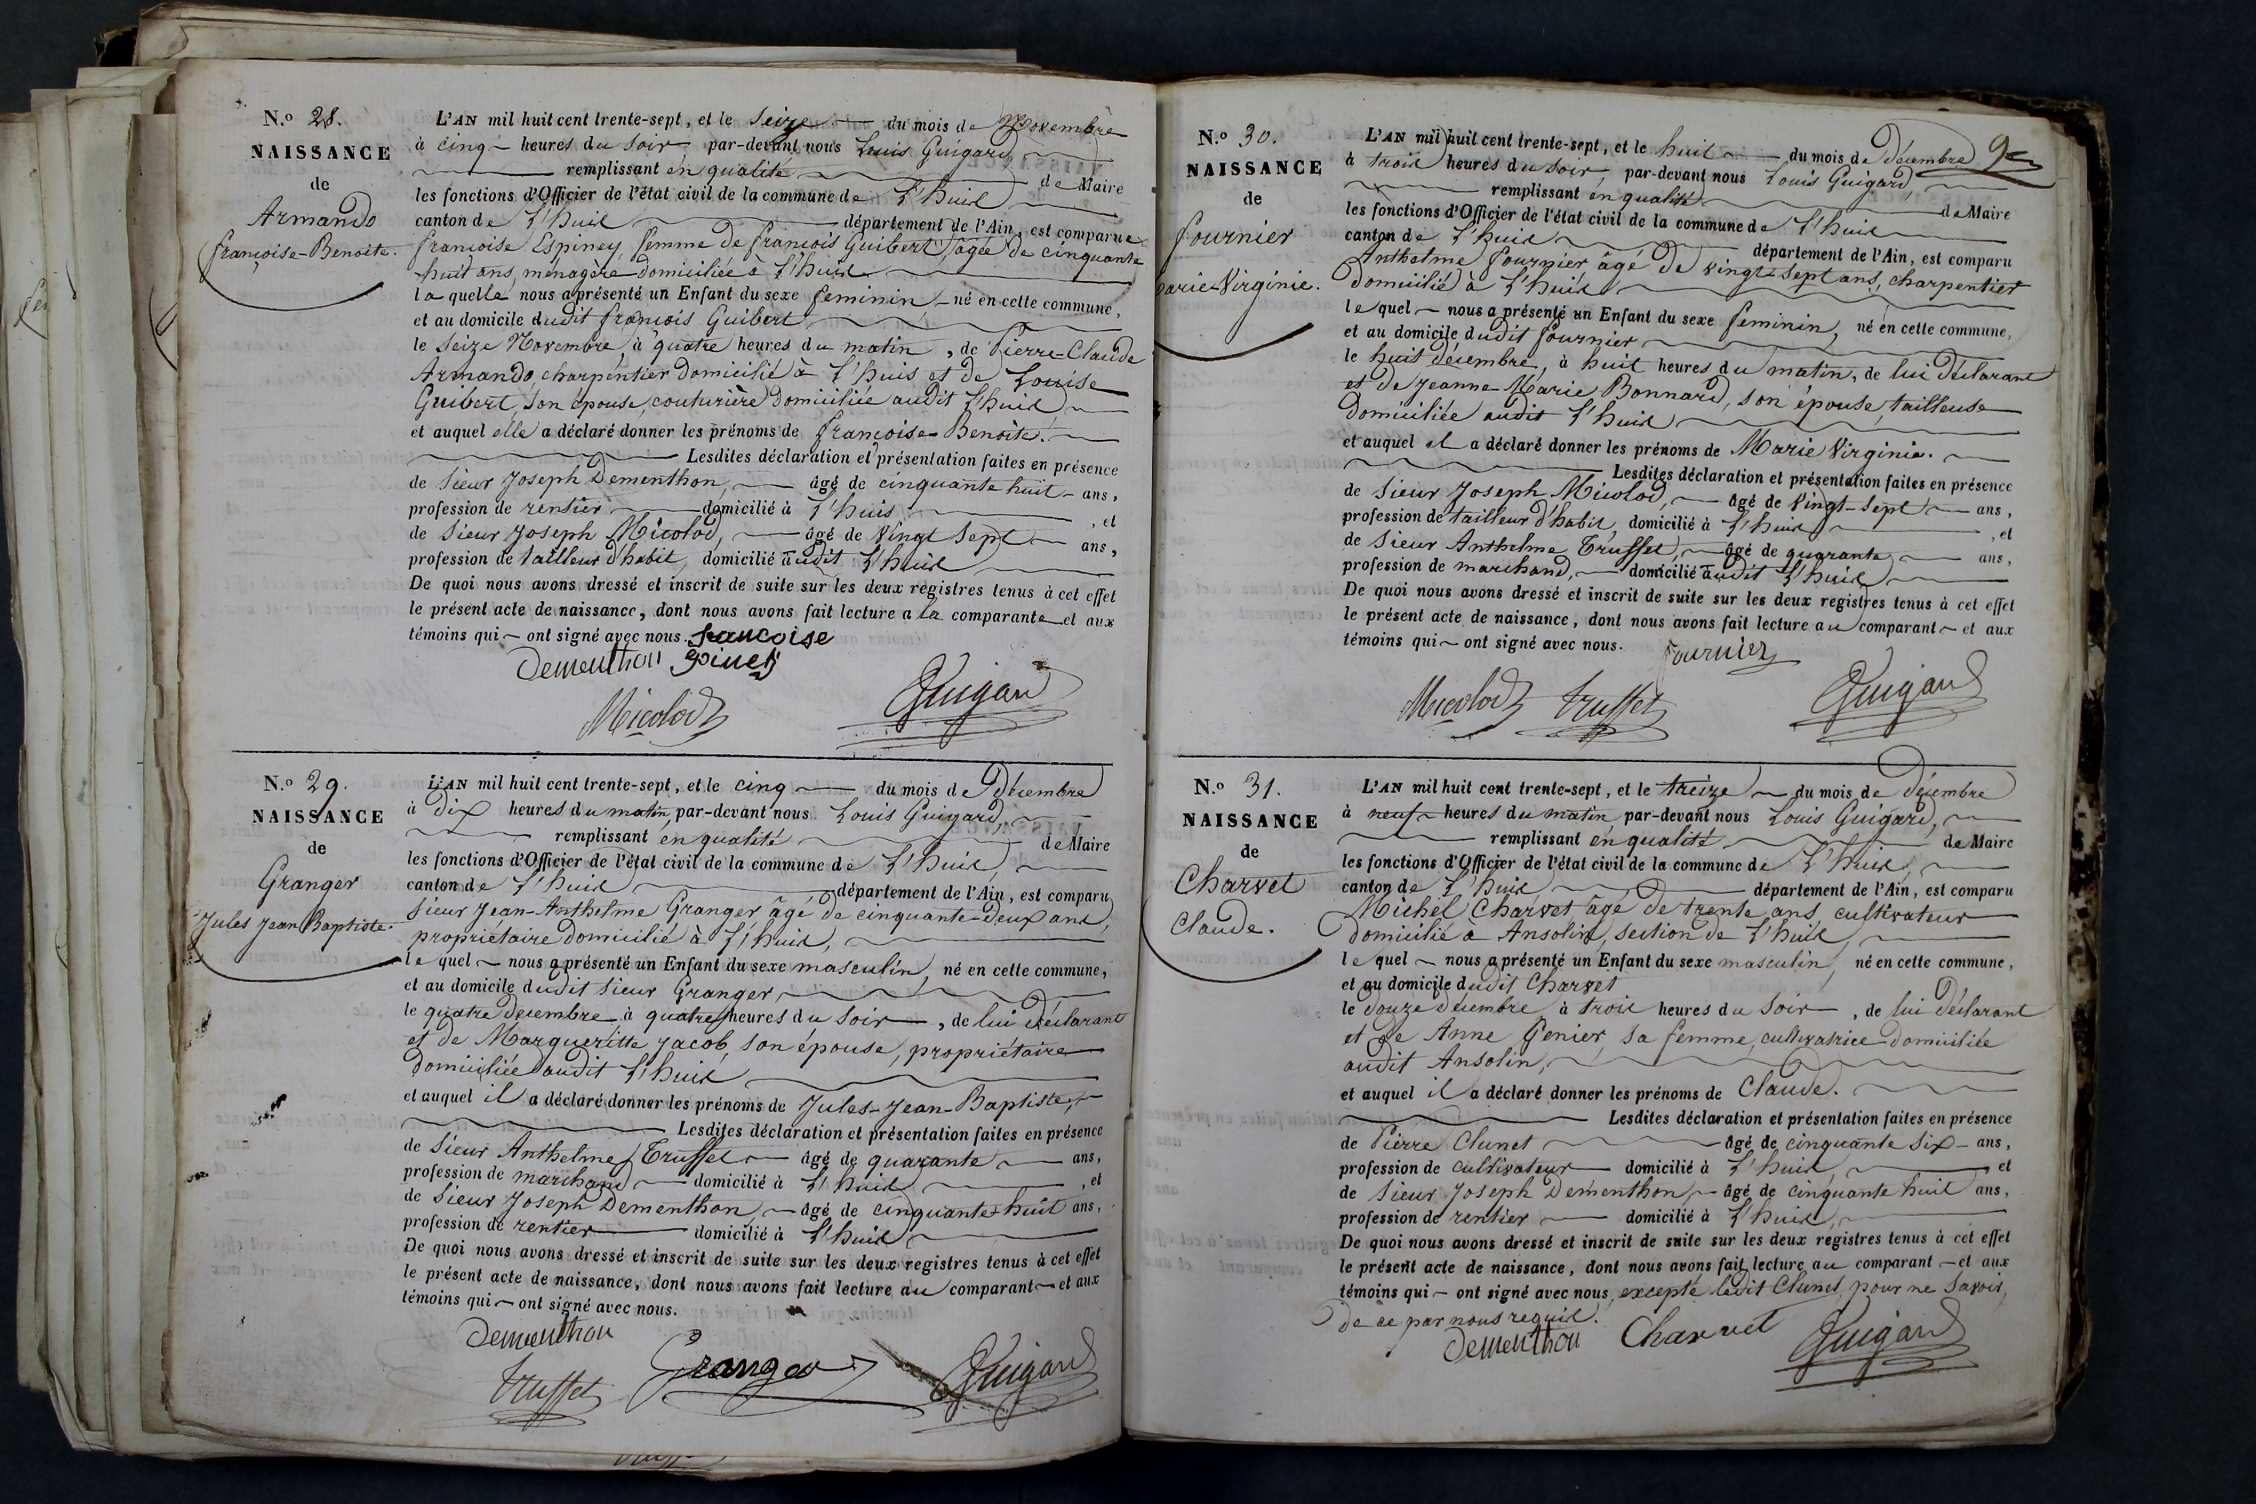 N.o 28.
NAISSANCE
de
Armando
françoise-Benoite.
L'AN mil huit cent trente-sept, et le Seize du mois de Novembre
à cinq heures du Soir par-devant nous Louis Guigard
remplissant en qualité de Maire
les fonctions d'Officier de l'état civil de la commune de L'huis
canton de L'huis département de l'Ain, est comparue
françoise Espiney, femme de françois Guibert, âgée de cinquante
huit ans, ménagère domiciliée à L'huis
la quelle nous a présenté un Enfant du sexe feminin, né en cette commune,
et au domicile dudit françois Guibert,
le Seize Novembre, à quatre heures du matin, de Pierre-Claude
Armando, charpentier domicilié à L'huis et de Louise
Guibert, son épouse, couturière domiciliée audit L'huis
et auquel elle a déclaré donner les prénoms de françoise-Benoite.
Lesdites déclaration et présentation faites en présence
de Sieur Joseph Dementhon, âgé de cinquante huit ans,
profession de rentier domicilié à L'huis, et
de Sieur Joseph Micolod, âgé de Vingt Sept ans,
profession de tailleur d'habit, domicilié audit L'huis
De quoi nous avons dressé et inscrit de suite sur les deux registres tenus à cet effet
le présent acte de naissance, dont nous avons fait lecture a la comparante et aux
témoins qui ont signé avec nous. francoise
Dementhon Epiney
Micolod
Guigard
N.o 29.
NAISSANCE
de
Granger
Jules Jean Baptiste.
L'AN mil huit cent trente-sept, et le cinq du mois de Décembre
à Dix heures du matin, par-devant nous Louis Guigard,
remplissant en qualité de Maire
les fonctions d'Officier de l'état civil de la commune de L'huis,
canton de L'huis département de l'Ain, est comparu
Sieur Jean-Anthelme Granger âgé de cinquante-deux ans,
propriétaire domicilié à L'huis,
le quel nous a présenté un Enfant du sexe masculin, né en cette commune,
et au domicile dudit Sieur Granger,
le quatre Décembre, à quatre heures du Soir, de lui Déclarant
et de Margueritte Jacob, son épouse, propriétaire
domiciliée audit L'huis
et auquel il a déclaré donner les prénoms de Jules-Jean-Baptiste,
Lesdites déclaration et présentation faites en présence
de Sieur Anthelme Truffet âgé de quarante ans,
profession de marchand domicilié à L'huis, et
de Sieur Joseph Dementhon, âgé de cinquante-huit ans,
profession de rentier domicilié à L'huis
De quoi nous avons dressé et inscrit de suite sur les deux registres tenus à cet effet
le présent acte de naissance, dont nous avons fait lecture au comparant et aux
témoins qui ont signé avec nous.
Dementhon
Truffet Granger Guigard
9
N.o 30.
NAISSANCE
de
fournier
Marie-Virginie.
L'AN mil huit cent trente-sept, et le huit du mois de Décembre
à trois heures du Soir, par-devant nous Louis Guigard,
remplissant en qualité de Maire
les fonctions d'Officier de l'état civil de la commune de L'huis
canton de L'huis département de l'Ain, est comparu
Anthelme fournier âgé de vingt-sept ans, charpentier
domicilié à L'huis
le quel nous a présenté un Enfant du sexe feminin, né en cette commune,
et au domicile dudit fournier
le huit Décembre, à huit heures du matin, de lui Déclarant
et de Jeanne-Marie Bonnard, son épouse, tailleuse
domiciliée audit L'huis
et auquel il a déclaré donner les prénoms de Marie Virginie.
Lesdites déclaration et présentation faites en présence
de Sieur Joseph Micolod, âgé de Vingt-Sept ans,
profession de tailleur d'habit, domicilié à L'huis, et
de Sieur Anthelme Truffet, âgé de quarante ans,
profession de marchand, domicilié audit L'huis,
De quoi nous avons dressé et inscrit de suite sur les deux registres tenus à cet effet
le présent acte de naissance, dont nous avons fait lecture au comparant et aux
témoins qui ont signé avec nous. Fournier
Micolod Truffet Guigard
N.o 31.
NAISSANCE
de
Charvet
Claude.
L'AN mil huit cent trente-sept, et le treize du mois de Décembre
à neuf heures du matin, par-devant nous Louis Guigard,
remplissant en qualité de Maire
les fonctions d'Officier de l'état civil de la commune de L'huis,
canton de L'huis département de l'Ain, est comparu
Michel Charvet âgé de trente ans, cultivateur
domicilié à Ansolin, section de L'huis,
le quel nous a présenté un Enfant du sexe masculin, né en cette commune,
et au domicile dudit Charvet
le Douze Décembre à trois heures du Soir, de lui Déclarant
et de Anne Genier, sa femme, cultivatrice domiciliée
audit Ansolin,
et auquel il a déclaré donner les prénoms de Claude.
Lesdites déclaration et présentation faites en présence
de Pierre Clunet âgé de cinquante Six ans,
profession de cultivateur domicilié à L'huis, et
de Sieur Joseph Dementhon, âgé de cinquante huit ans,
profession de rentier domicilié à L'huis,
De quoi nous avons dressé et inscrit de suite sur les deux registres tenus à cet effet
le présent acte de naissance, dont nous avons fait lecture au comparant et aux
témoins qui ont signé avec nous, excepté ledit Clunet, pour ne Savoir,
de ce par nous requis.
Dementhon Charvet Guigard